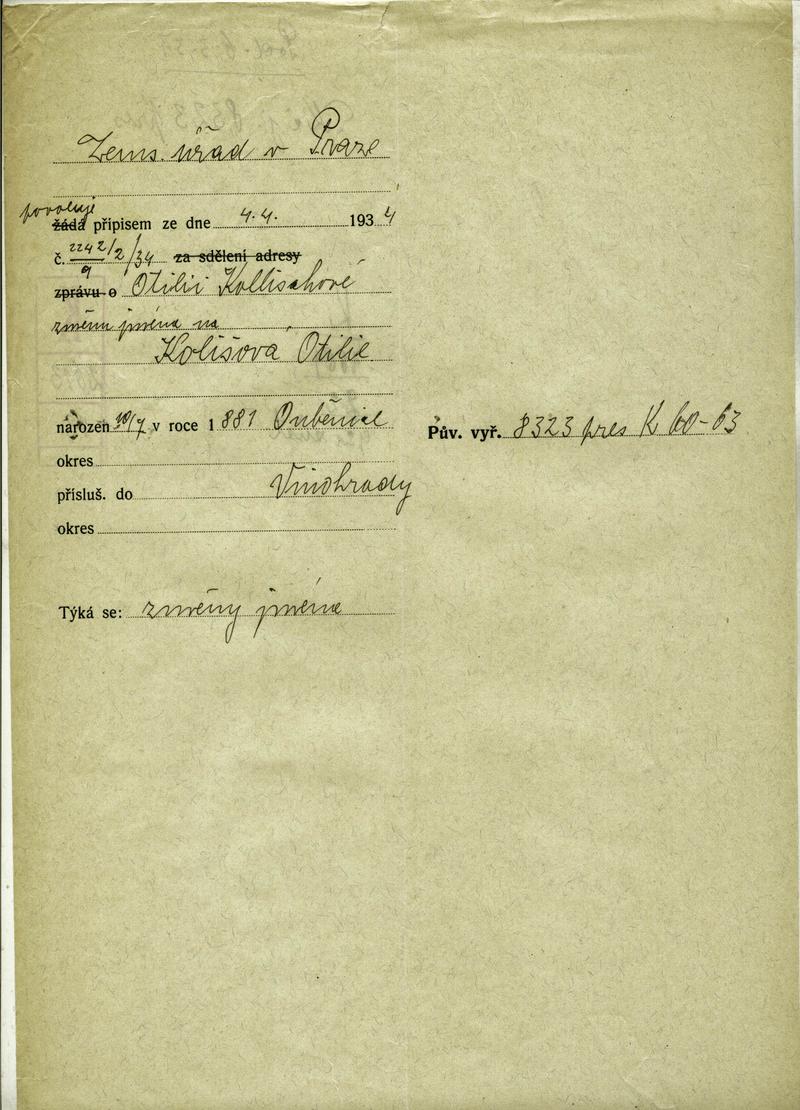 Zems. úřad v Praze
povoluje
žádá přípisem ze dne 4.4. 1934
č. 2242/2/34 za sdělení adresy
9
zprávu o Otilii Kollischové
změnu jména na
Kolišová Otilie
narozen 10/7 v roce 1881 Ouběnice
okres
přísluš. do Vinohrady
okres
Týká se: změny jména
Pův. vyř. 8323 pres K 60-63